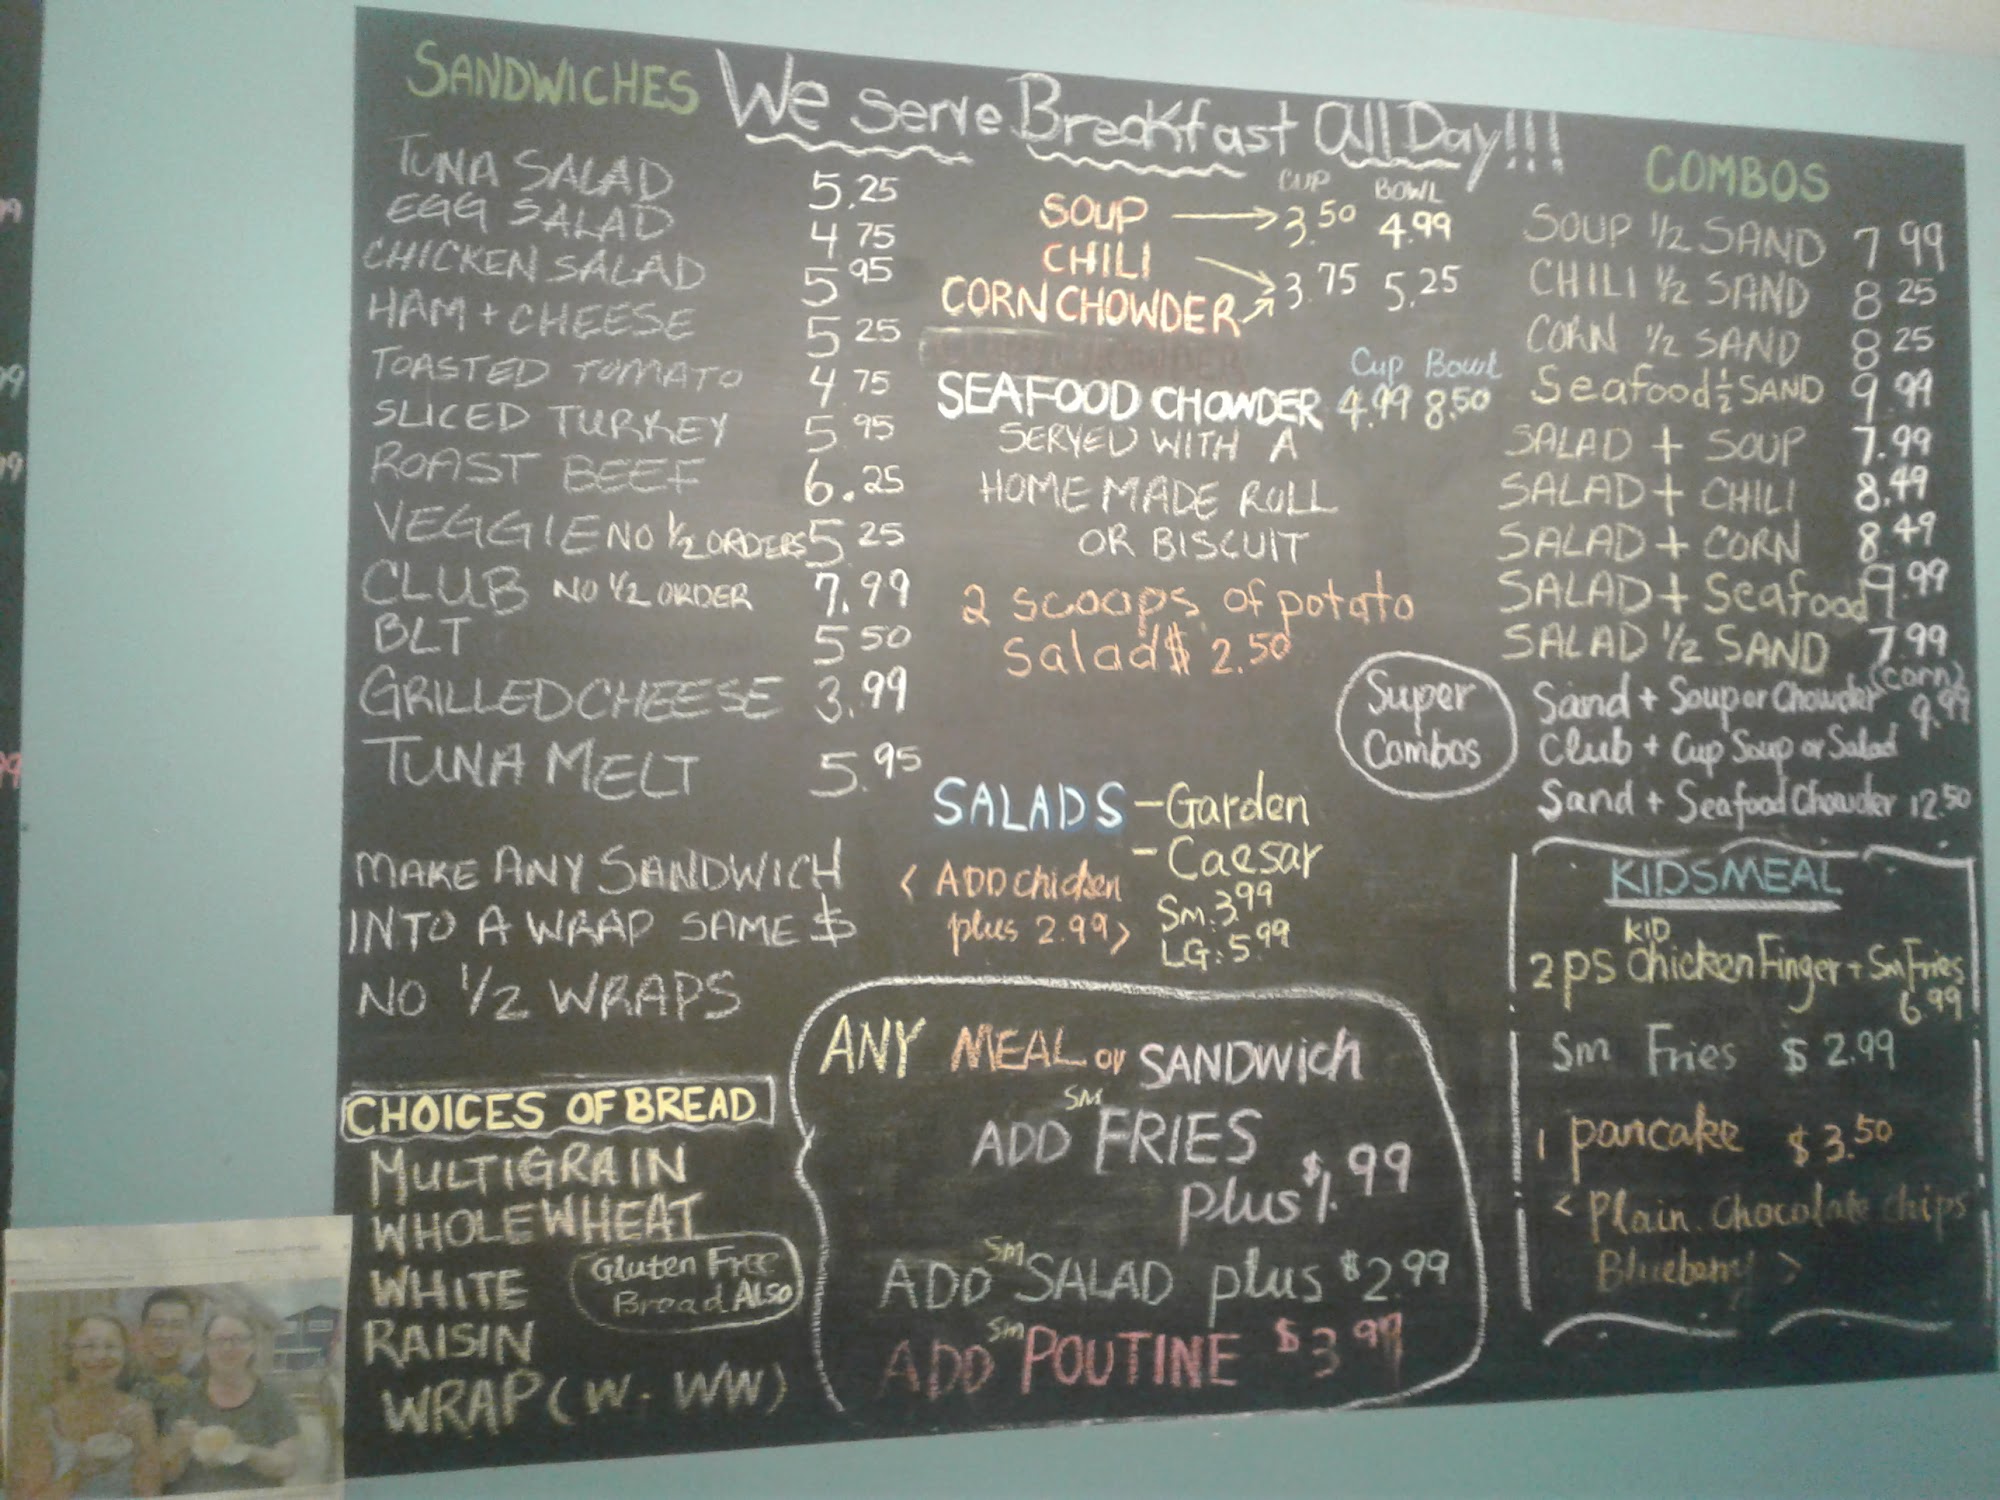 SANDWICHES
We Serve Breakfast All Day!!!
TUNA SALAD 5.25
EGG SALAD 4 75
CHICKEN SALAD 5 95
HAM + CHEESE 5 25
TOASTED TOMATO 4 75
SLICED TURKEY 5 95
ROAST BEEF 6.25
VEGGIE NO 1/2 ORDERS 5 25
CLUB NO 1/2 ORDER 7.99
BLT 5 50
GRILLED CHEESE 3.99
TUNA MELT 5.95
MAKE ANY SANDWICH
INTO A WRAP SAME $
NO 1/2 WRAPS
CHOICES OF BREAD
MULTIGRAIN
WHOLEWHEAT
WHITE
RAISIN
WRAP (W. WW)
Gluten Free
Bread Also
CUP BOWL
SOUP 3.50 4.99
CHILI
3.75 5.25
CORN CHOWDER
CHOWDER
Cup Bowl
SEAFOOD CHOWDER 4.99 8.50
SERVED WITH A
HOMEMADE ROLL
OR BISCUIT
2 scoops of potato
salad $ 2.50
SALADS - Garden
- Caesar
< ADD chicken
plus 2.99 >
Sm. 3.99
LG: 5.99
ANY MEAL or SANDWich
ADD SM FRIES
plus $1.99
ADD Sm SALAD plus $2.99
ADD Sm POUTINE $3.99
COMBOS
SOUP 1/2 SAND 7 99
CHILI 1/2 SAND 8 25
CORN 1/2 SAND 8 25
Seafood 1/2 SAND 9.99
SALAD + SOUP 7.99
SALAD + CHILI 8.49
SALAD + CORN 8.49
SALAD + Seafood 9.99
SALAD 1/2 SAND 7.99
Super
Combos
(corn)
Sand + Soup or Chowder 9.99
Club + Cup Soup or Salad
Sand + Seafood Chowder 12.50
KIDSMEAL
KID
2 ps Chicken Finger + Sm Fries
6.99
Sm Fries $ 2.99
1 pancake $ 3.50
< Plain. Chocolate chips
Blueberry >